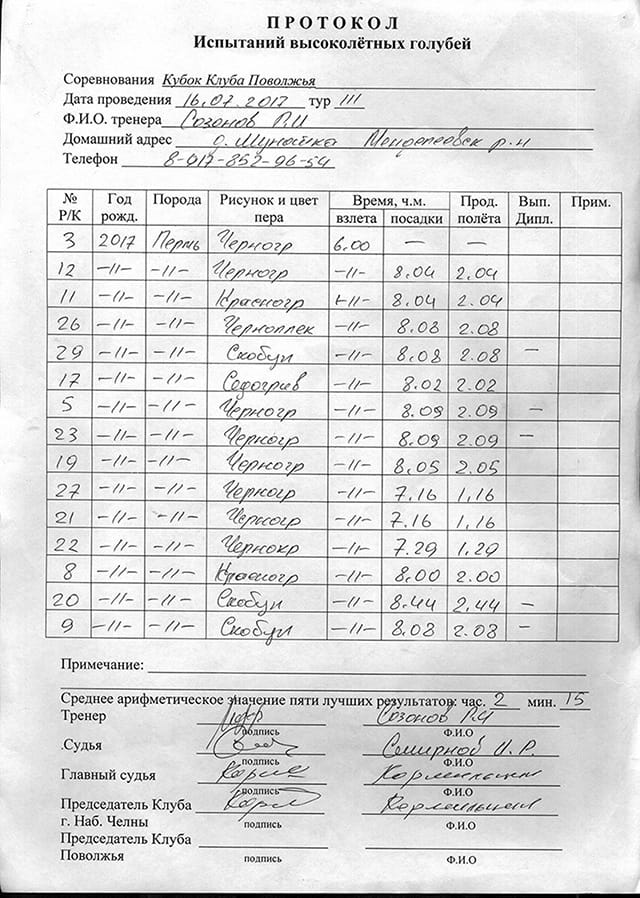 ПРОТОКОЛ
Испытаний высоколётных голубей
Соревнования Кубок Клуба Поволжья
Дата проведения 16.07.2017 тур III
Ф.И.О. тренера Созонов Р.И
Домашний адрес д. Мунайка Менделеевск р-н
Телефон 8-912-852-96-54
№ Р/К Год рожд. Порода Рисунок и цвет пера Время, ч.м. взлета посадки Прод. полёта Вып. Дипл. Прим.
3 2017 Пермь Черногр 6.00 — —
12 -//- -//- Черногр -//- 8.04 2.04
11 -//- -//- Красногр -//- 8.04 2.04
26 -//- -//- Черноплек -//- 8.08 2.08
29 -//- -//- Скобул -//- 8.08 2.08 —
17 -//- -//- Седогрив -//- 8.02 2.02
5 -//- -//- Черногр -//- 8.09 2.09 —
23 -//- -//- Черногр -//- 8.09 2.09 —
19 -//- -//- Черногр -//- 8.05 2.05
27 -//- -//- Черногр -//- 7.16 1.16
21 -//- -//- Черногр -//- 7.16 1.16
22 -//- -//- Чернокр -//- 7.29 1.29
8 -//- -//- Красногр -//- 8.00 2.00
20 -//- -//- Скобул -//- 8.44 2.44 —
9 -//- -//- Скобул -//- 8.08 2.08 —
Примечание:
Среднее арифметическое значение пяти лучших результатов: час. 2 мин. 15
Тренер Созонов Р.И
подпись Ф.И.О
.Судья Смирнов И.Р.
подпись Ф.И.О
Главный судья
подпись Ф.И.О
Председатель Клуба
г. Наб. Челны подпись Ф.И.О
Председатель Клуба
Поволжья подпись Ф.И.О